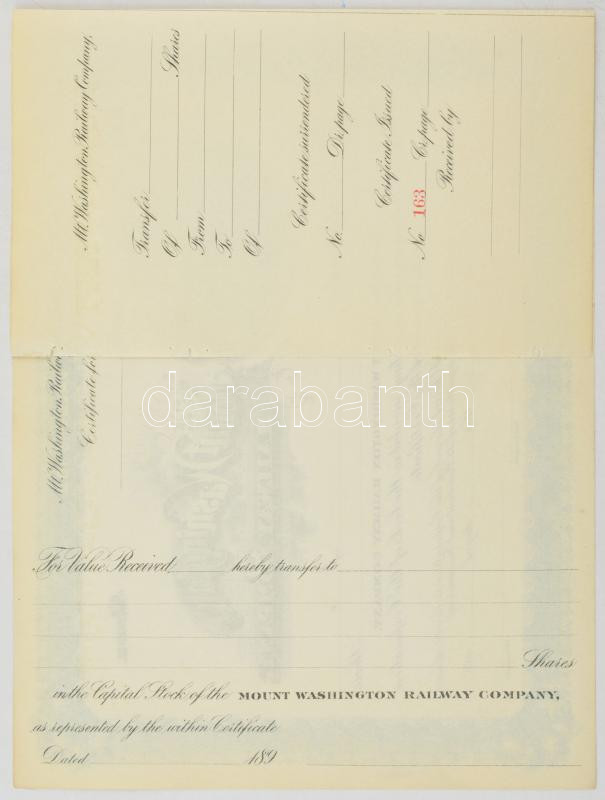 Mt. Washington Railway Company.
Transfer
Of Shares
From
To
Of
Certificate surrendered
No. Dr. page
Certificate Issued
No 163 Cr. page
Received by
Mt. Washington Railw
Certificate for
darabanth
For Value Received hereby transfer to
Shares
in the Capital Stock of the MOUNT WASHINGTON RAILWAY COMPANY,
as represented by the within Certificate
Dated 189